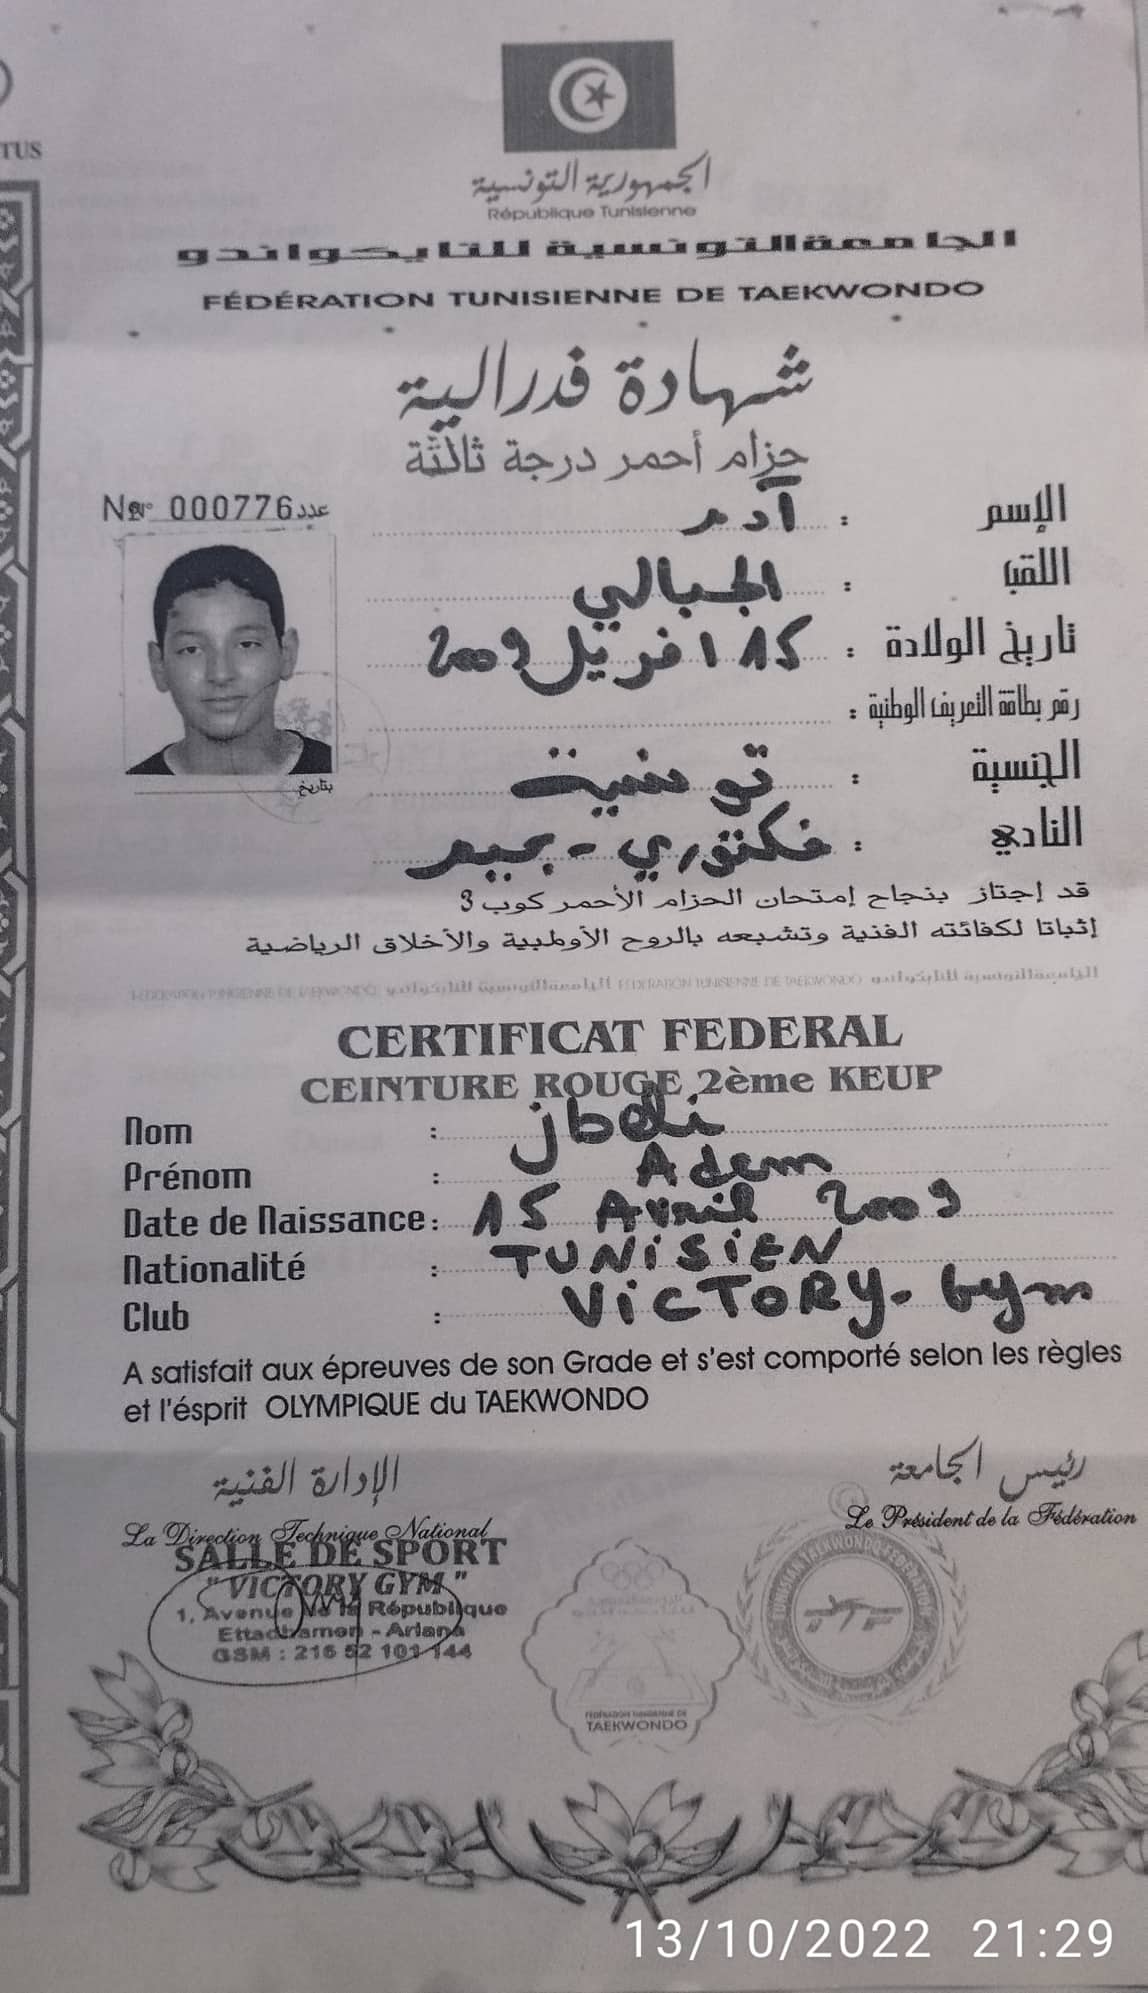 TUS
الجمهورية التونسية
République Tunisienne
الجامعة التونسية للتايكواندو
FÉDÉRATION TUNISIENNE DE TAEKWONDO
شهادة فدرالية
حزام أحمر درجة ثالثة
000776 عدد
الإسم : آدم
اللقب : الجبالي
تاريخ الولادة : 15 افريل 2009
رقم بطاقة التعريف الوطنية :
الجنسية : تونسية
بتاريخ
النادي : فكتوري - جيم
قد إجتاز بنجاح إمتحان الحزام الأحمر كوب 3
إثباتا لكفائته الفنية وتشبعه بالروح الأولمبية والأخلاق الرياضية
FEDERATION TUNISIENNE DE TAEKWONDO الجامعة التونسية للتايكواندو FEDERATION TUNISIENNE DE TAEKWONDO الجامعة التونسية للتايكواندو
CERTIFICAT FEDERAL
CEINTURE ROUGE 2ème KEUP
Nom : jbeli
Prénom : Adem
Date de Naissance : 15 Avril 2009
Nationalité : TUNiSiEN
Club : ViCTORY- Gym
A satisfait aux épreuves de son Grade et s'est comporté selon les règles
et l'ésprit OLYMPIQUE du TAEKWONDO
الإدارة الفنية
La Direction Technique National
رئيس الجامعة
Le Président de la Fédération
SALLE DE SPORT
"VICTORY GYM"
1, Avenue de la République
Ettadhamen - Ariana
GSM : 216 52 101 144
TUNISIAN TAEKWONDO FEDERATION
FEDERATION TUNISIENNE DE
TAEKWONDO
13/10/2022 21:29